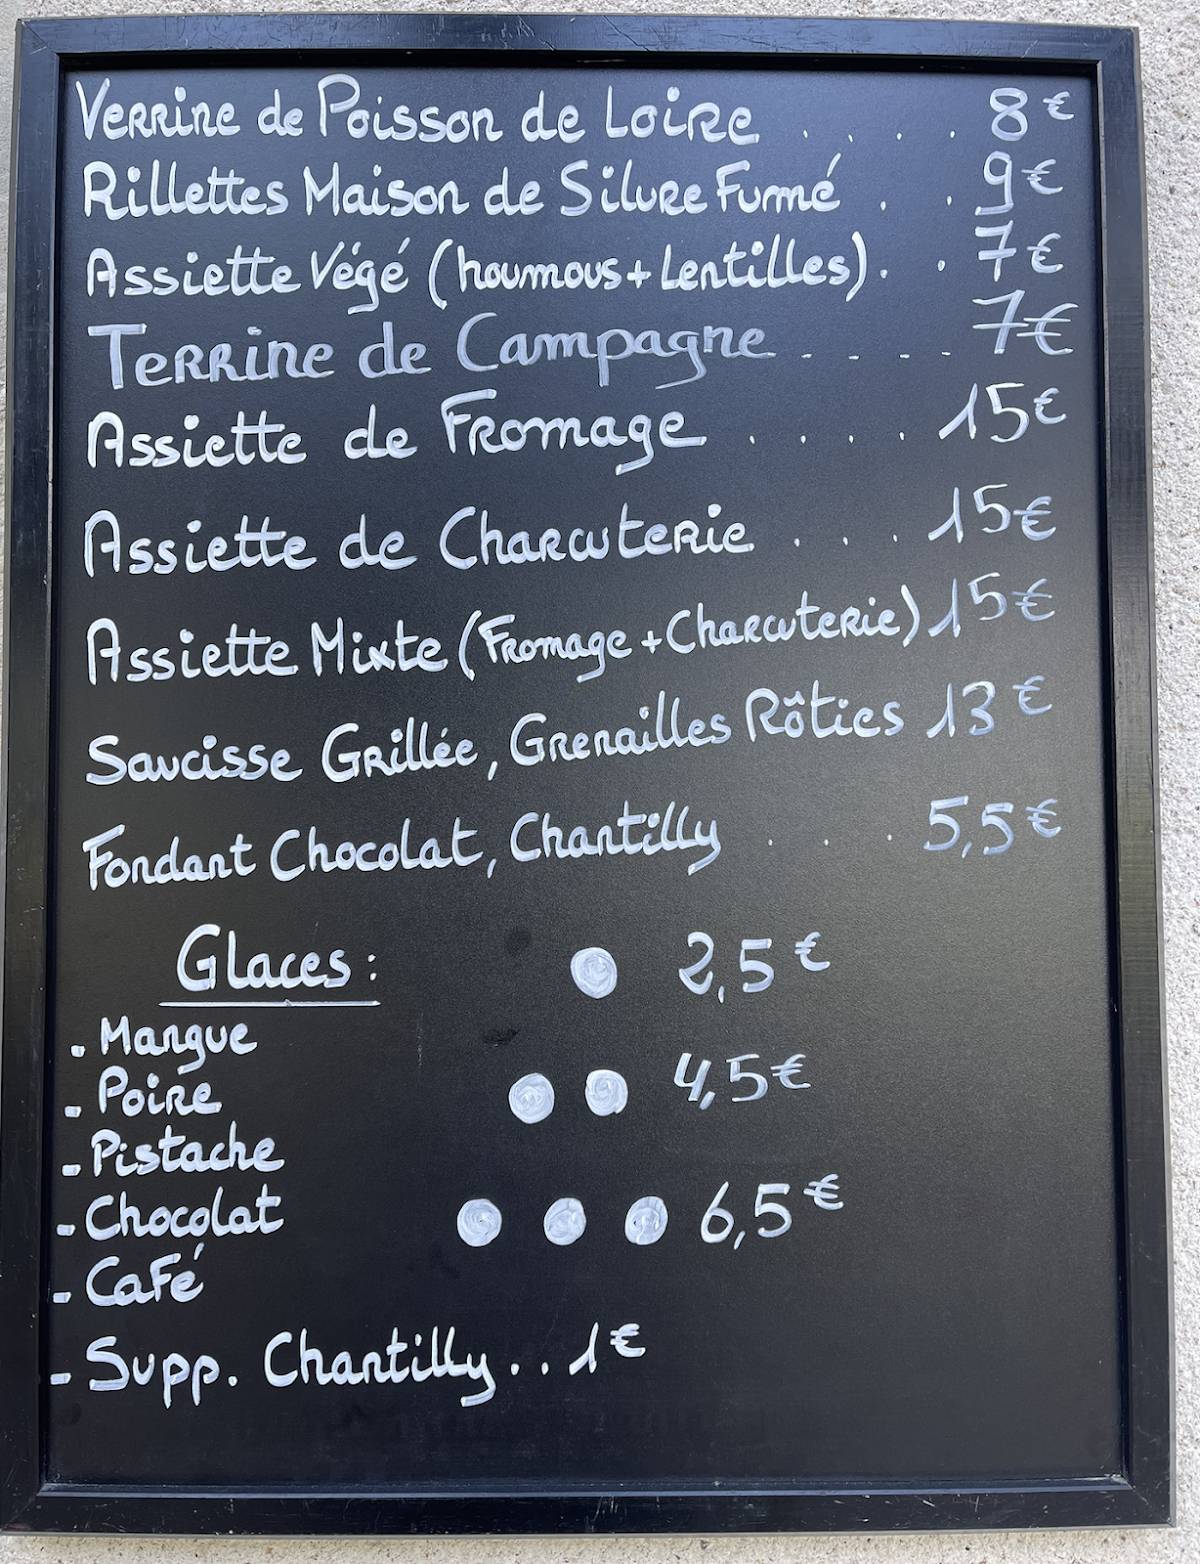 Verrine de Poisson de Loire . . . . 8€
Rillettes Maison de Silure Fumé . . 9€
Assiette Végé (houmous + Lentilles) . . 7€
Terrine de Campagne . . . . 7€
Assiette de Fromage . . . . 15€
Assiette de Charcuterie . . . 15€
Assiette Mixte (Fromage + Charcuterie) 15€
Saucisse Grillée, Grenailles Rôties 13€
Fondant Chocolat, Chantilly . . . 5,5€
Glaces : 2,5€
- Mangue
- Poire 4,5€
- Pistache
- Chocolat 6,5€
- Café
- Supp. Chantilly . . 1€